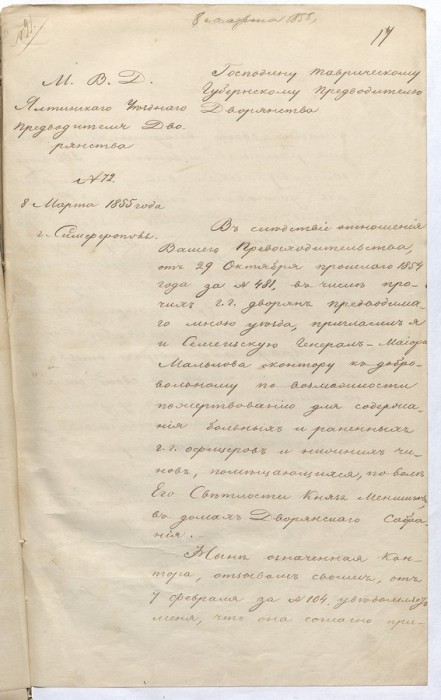 8 марта 1855,
17
М. В. Д.
Ялтинскаго Уѣзднаго
Предводителя Дво-
рянства
№ 72.
8 Марта 1855 года
г. Симферополь.
Господину Таврическому
Губернскому Предводителю
Дворянства
Въ слѣдствіе отношенія
Вашего Превосходительства,
отъ 29 Октября прошлаго 1854
года за № 481, въ числѣ про-
чихъ г.г. дворянъ предводима-
го мною уѣзда, пригласилъ я
и Семейскую Генералъ-Маіора
Мальцова контору къ добро-
вольному по возможности
пожертвованію для содержа-
нія больныхъ и раненныхъ
г.г. офицеровъ и нижнихъ чи-
новъ, помѣщающихся, по волѣ
Его Свѣтлости Князя Меншикова,
въ домахъ Дворянскаго Собра-
нія.
Нынѣ означенная Кон-
тора, отзывомъ своимъ, отъ
7 февраля за № 104. увѣдомляетъ
меня, что она согласно при-